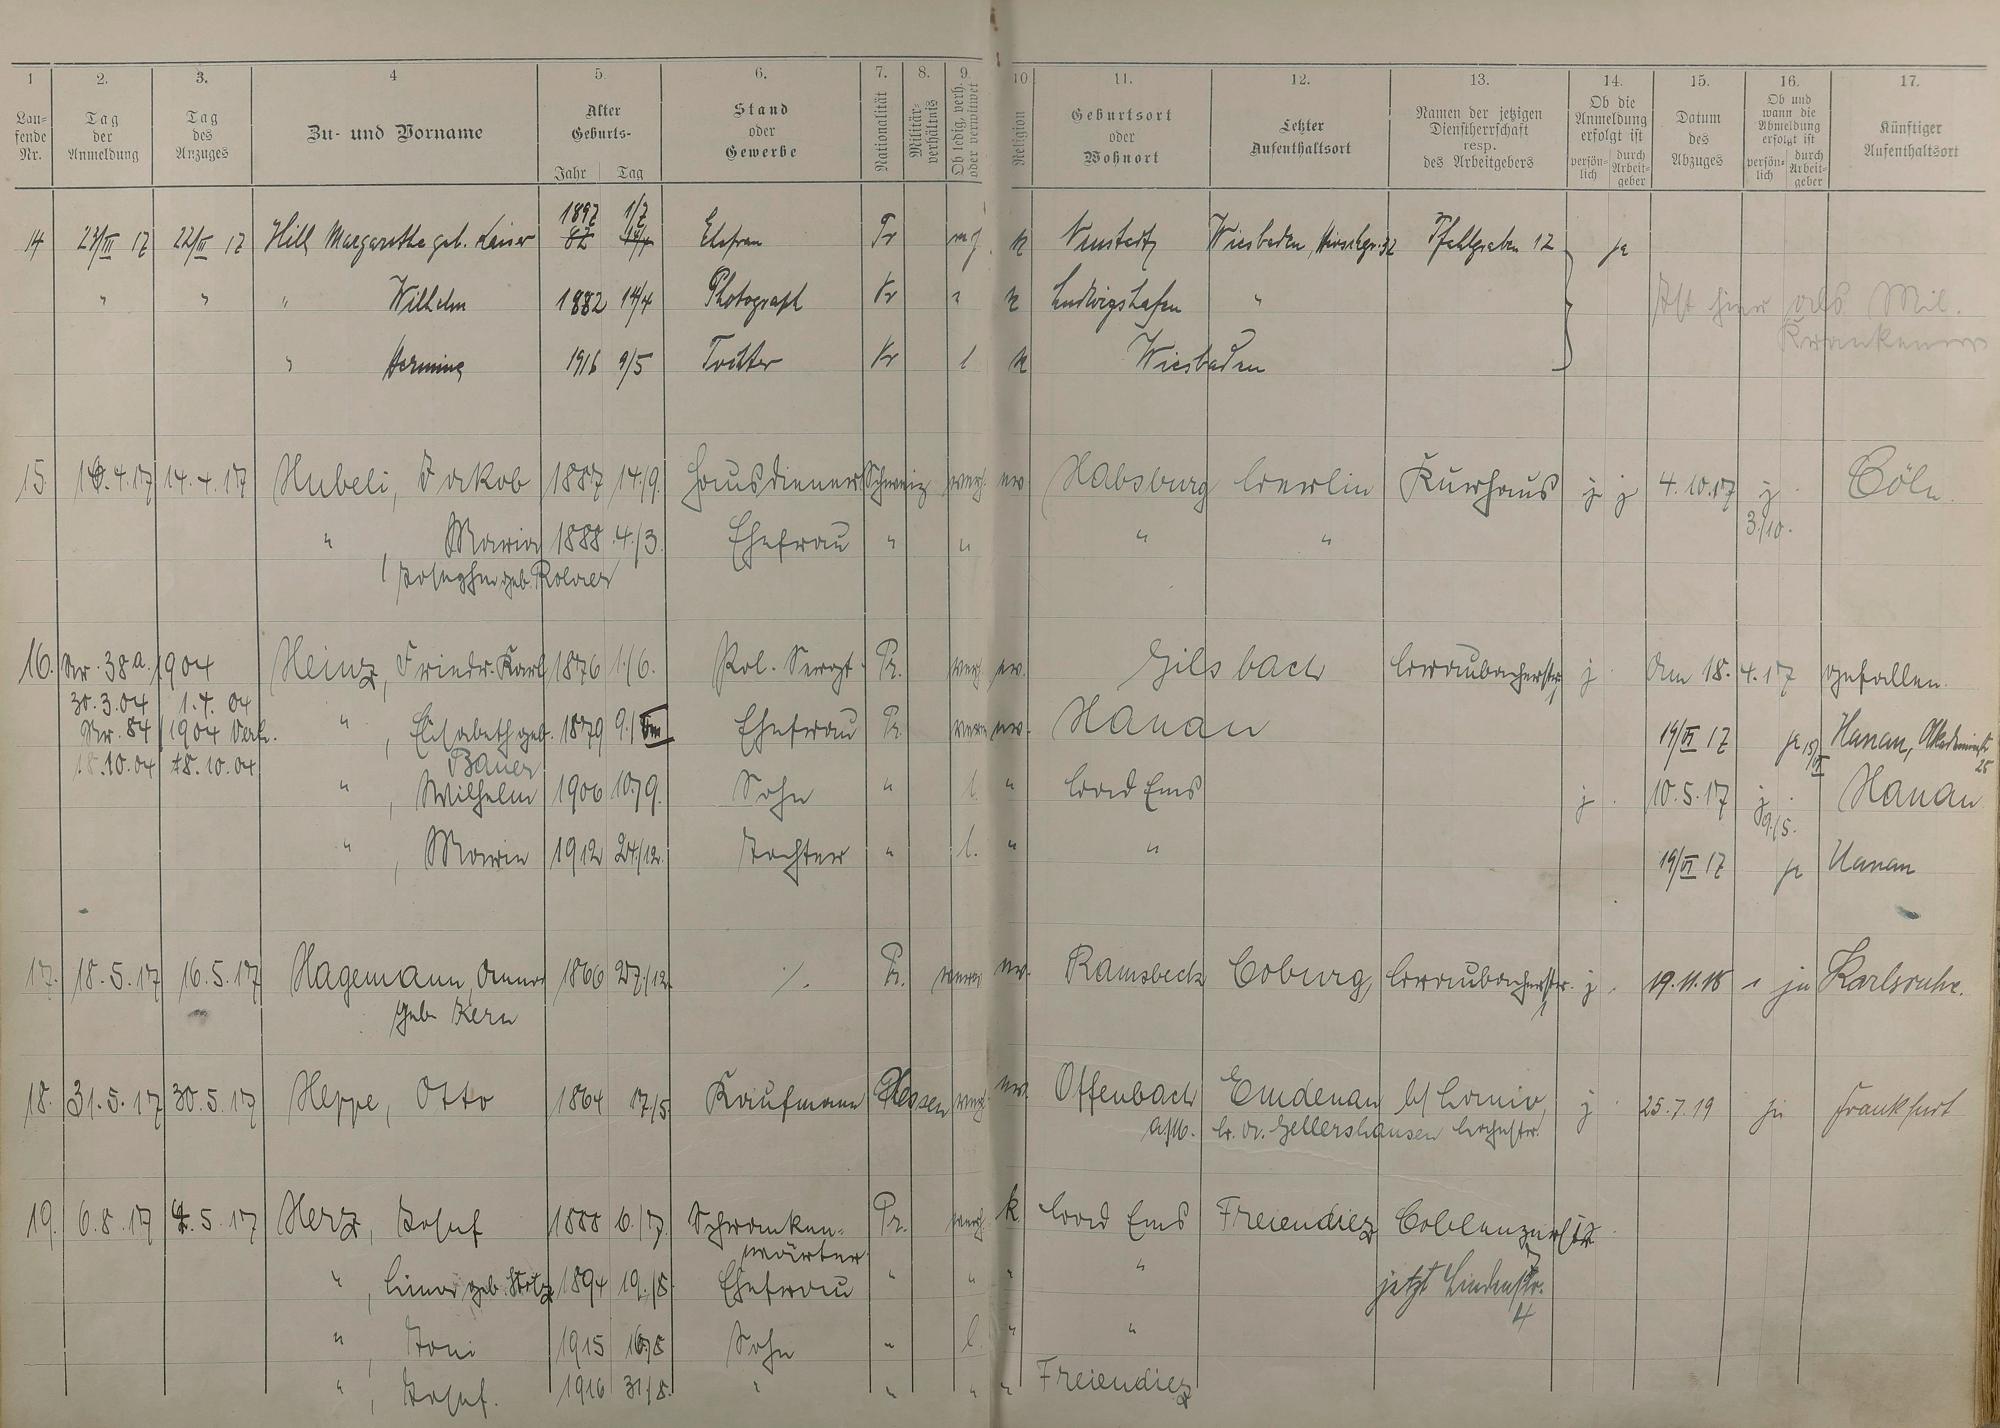 1 2. 3. 4 5. 6. 7. 8. 9. 10 11. 12. 13. 14. 15. 16. 17.
Lau-
fende
Nr.
Tag
der
Anmeldung
Tag
des
Anzuges
Zu- und Vorname
Alter
Geburts-
Jahr Tag
Stand
oder
Gewerbe
Nationalität
Militär-
verhältnis
Ob ledig, verh.
oder verwitwet
Religion
Geburtsort
oder
Wohnort
Letzter
Aufenthaltsort
Namen der jetzigen
Dienstherrschaft
resp.
des Arbeitgebers
Ob die
Anmeldung
erfolgt ist
persön-
lich
durch
Arbeit-
geber
Datum
des
Abzuges
Ob und
wann die
Abmeldung
erfolgt ist
persön-
lich
durch
Arbeit-
geber
Künftiger
Aufenthaltsort
1892 1/7
14 23/III 17 22/III 17 Hill Margarethe geb. Kaiser 82 14/4 Ehefrau Pr k Neustadt Wiesbaden, Hirschgr. 32 Pfahlgraben 12 ja
" " " Wilhelm 1882 14/4 Photograph Pr " k Ludwigshafen " Ist hier als Mil.
Krankenw
" Hermine 1916 9/5 Tochter Pr l k Wiesbaden
15 14.4.17 14.4.17 Hubeli, Jakob 1887 14./9. Hausdiener Schweiz verh. ev Habsburg Berlin Kurhaus j j 4.10.17 j Cöln.
3./10.
" , Maria 1888 4./3. Ehefrau " " " "
Josephe geb. Rolver
16. Nr. 38a. 1904 Heinz, Friedr. Karl 1876 1./6. Pol. Sergt. Pr. verh. ev. Gilsbach Braubacherstr. j. Am 18. 4.17 gefallen.
30.3.04 1.4.04
Nr. 84 1904 Verh. " , Elisabeth geb. 1879 9./VIII Ehefrau Pr. verw ev. Hanau 19/VI 17 ja 15/VI Hanau, Akademiestr
18.10.04 18.10.04 Bauer 25
" , Wilhelm 1906 10./9. Sohn " l. " Bad Ems j. 10.5.17 j. Hanau
9./5.
" , Marie 1912 24./12. Tochter " l. " " 19/VI 17 ja Hanau
17. 18.5.17 16.5.17 Hagemann, Anna 1866 27./12. ./. Pr. verw ev. Ramsbeck Coburg, Braubacherstr. j. 19.11.18 ja Karlsruhe.
geb. Kern 1
18. 31.5.17 30.5.17 Heppe, Otto 1864 17./5. Kaufmann Hessen verh. ev. Offenbach Emdenau j. 25.7.19 ja Frankfurt
a/M. b. Dr. Gellershausen Bachstr.
19. 6.8.17 4.5.17 Herz, Josef 1888 6./7. Schranken- Pr. verh. k Bad Ems Freiendiez Coblenzerstr
wärter
" , Lina geb. Stotz 1894 19./8. Ehefrau " " " " jetzt Lindenstr.
4
" , Toni 1915 16./8 Sohn " l. " "
" , Josef. 1916 31./8. " " " " Freiendiez